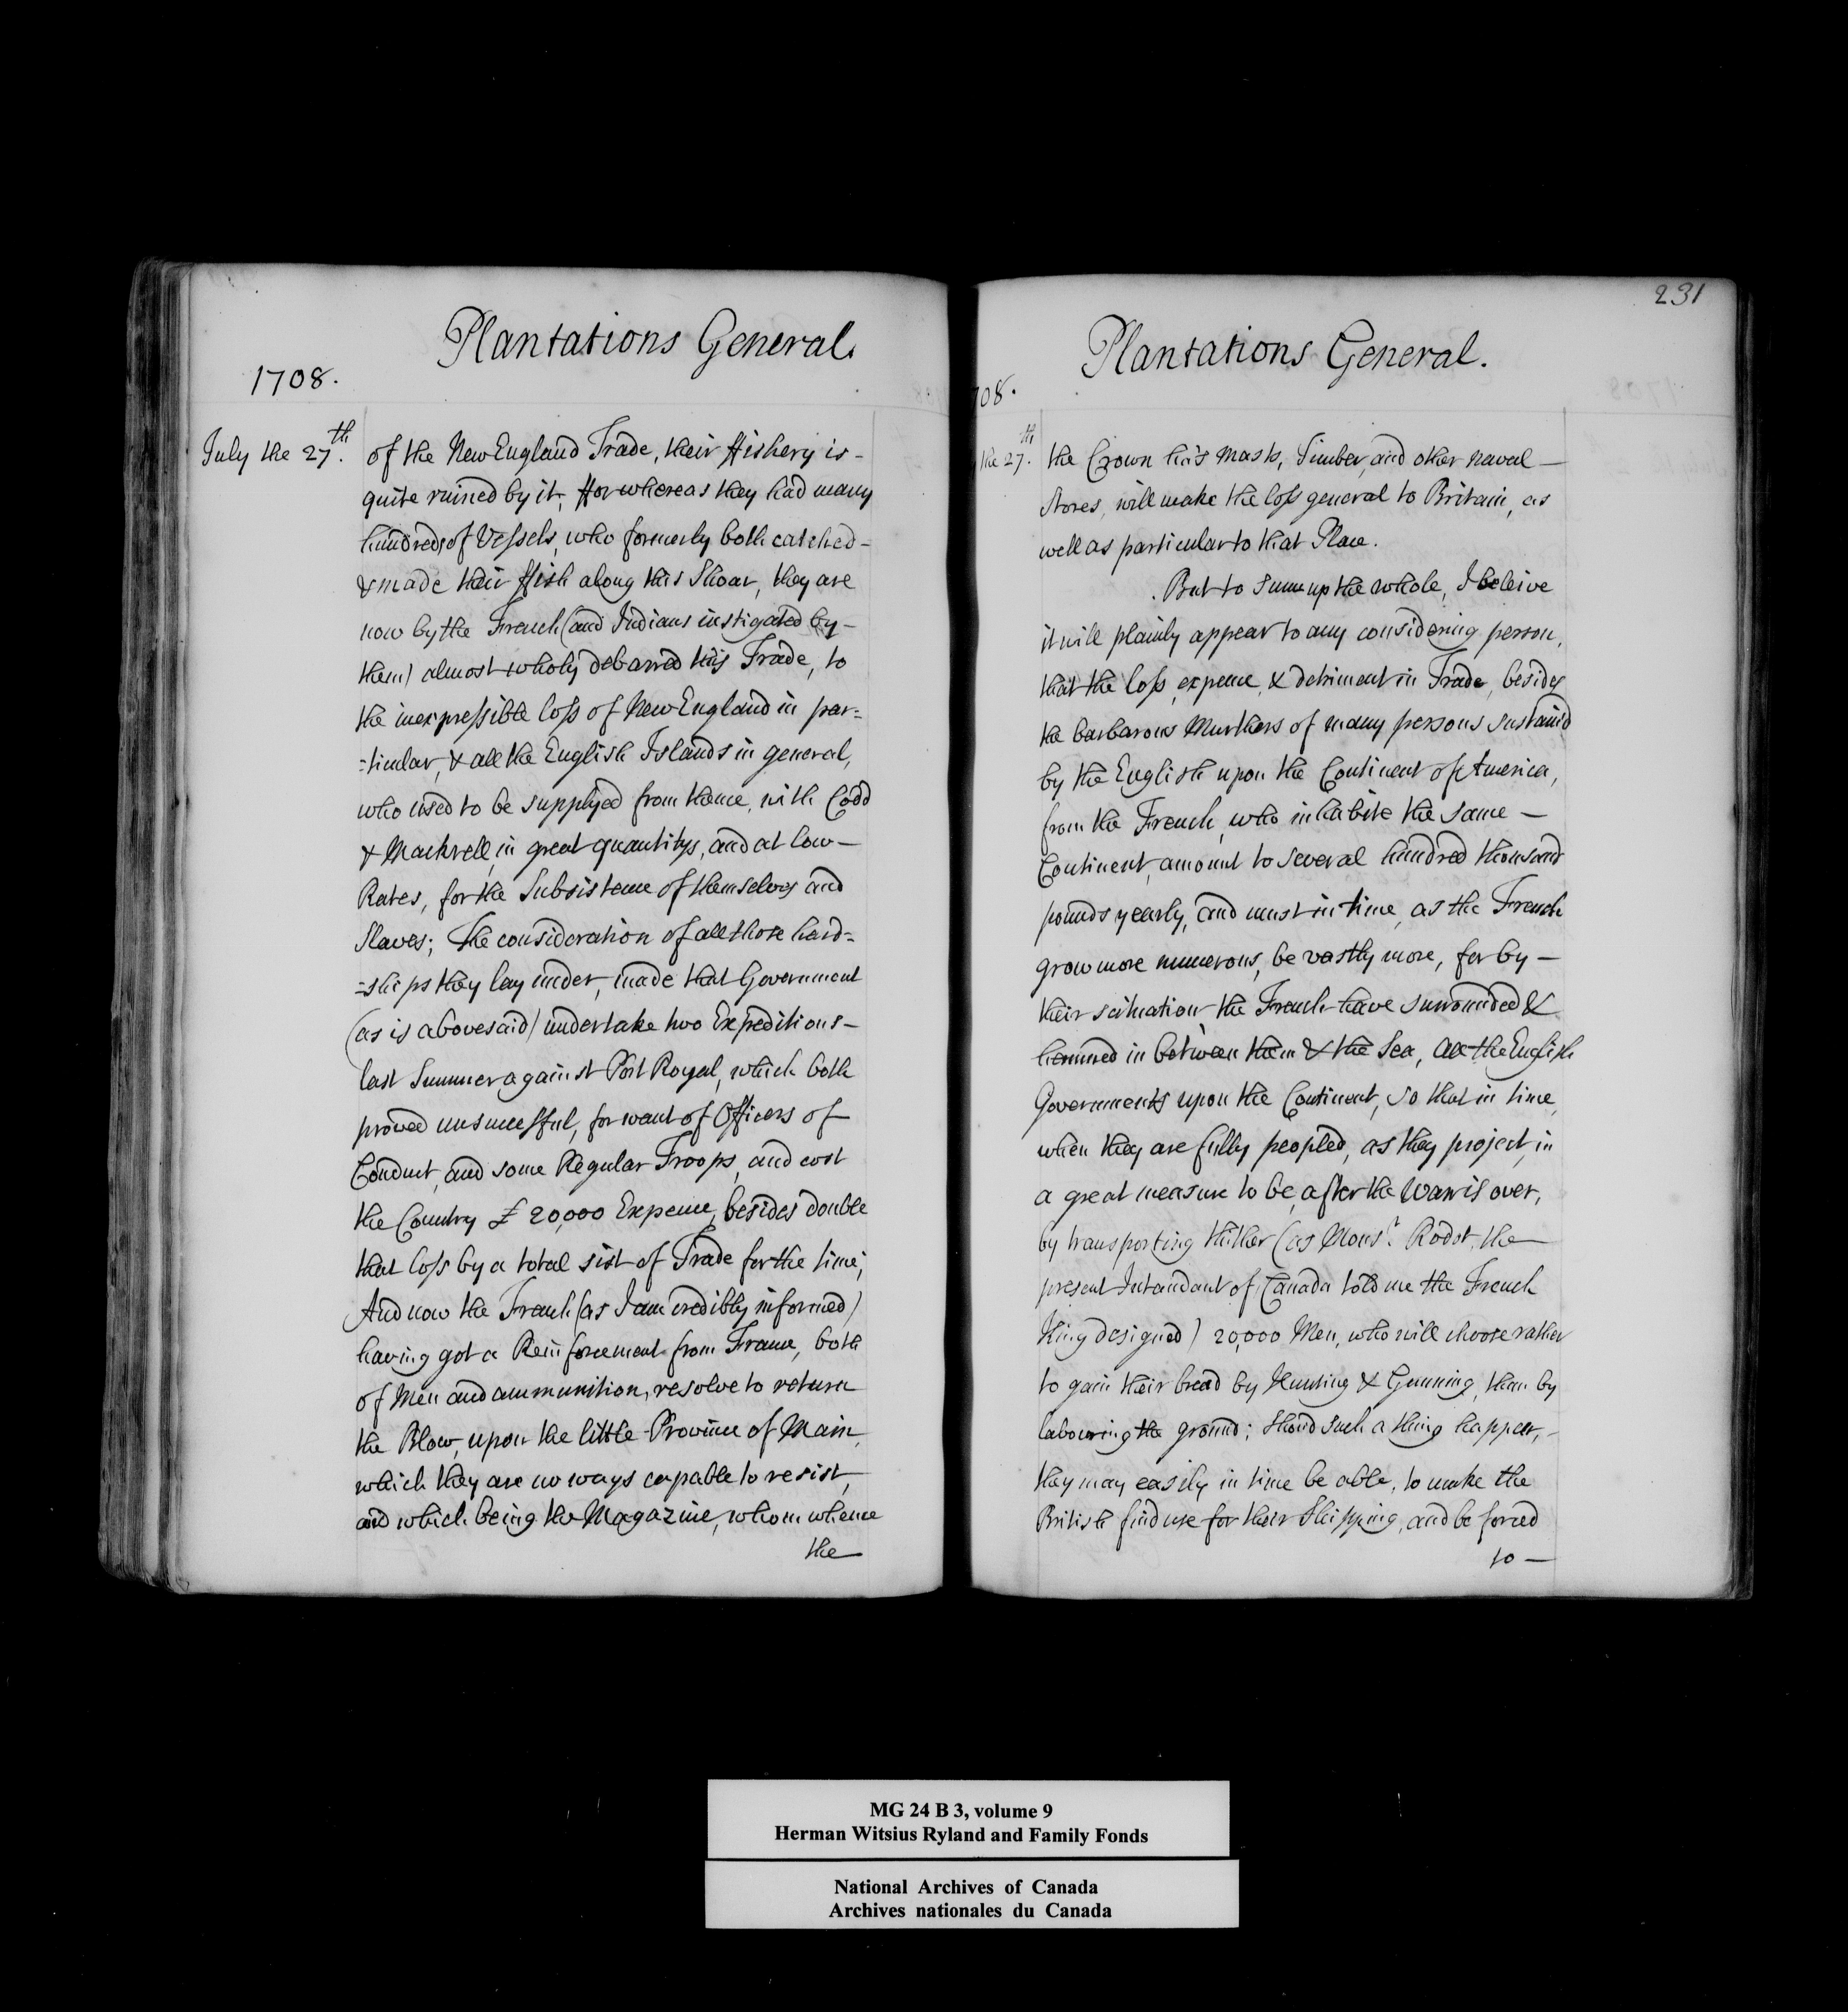 Plantations General.
1708.
July the 27th.
of the New England Trade, their ffishery is-
quite ruined by it, ffor whereas they had many
hundreds of Vessels, who formerly both catched-
& made their ffish along this Shoar, they are
now by the French (and Indians instigated by-
them) almost wholy debarred this Trade, to
the inexpressible loss of New England in par=
=ticular, & all the English Islands in general,
who used to be supplyed from thence, with Codd
& Mackrell, in great quantitys, and at low-
Rates, for the Subsistence of themselves and
Slaves; The consideration of all those hard=
=ships they lay under, made that Government
(as is abovesaid) undertake two Expeditions-
last Summer against Port Royal, which both
proved unsucessful, for want of Officers of
Conduct, and some Regular Troops, and cost
the Country £ 20,000 Expence, besides double
that loss by a total sist of Trade for the time;
And now the French (as I am credibly informed)
having got a Reinforcement from France, both
of Men and ammunition, resolve to return
the Blow, upon the little Province of Main,
which they are no ways capable to resist,
and which being the Magazine, whom whence
the-
231
Plantations General.
708.
the 27th.
the Crown has Masts, Timber, and other naval-
Stores, will make the loss general to Britain, as
well as particular to that Place.
But to Summ up the whole, I beleive
it will plainly appear to any considering person,
that the loss, expence, & detriment in Trade, besides
the barbarous Murthers of many persons sustain'd
by the English upon the Continent of America,
from the French, who inhabite the same-
Continent, amount to several hundred thousand
pounds yearly, and must in time, as the French
grow more numerous, be vastly more, for by-
their situation the French have surrounded &
hemmed in between them & the Sea, all the English
Governments upon the Continent, so that in time,
when they are fully peopled, as they project, in
a great measure to be, after the Warr is over,
by transporting thither (as Monsr. Rodot, the
present Intendant of Canada told me the French
King designed) 20,000 Men, who will choose rather
to gain their bread by Hunting & Gunning, than by
labouring the ground; Shoud such a thing happen,-
they may easily in time be able, to make the
British find use for their Shipping, and be forced
to-
MG 24 B 3, volume 9
Herman Witsius Ryland and Family Fonds
National Archives of Canada
Archives nationales du Canada